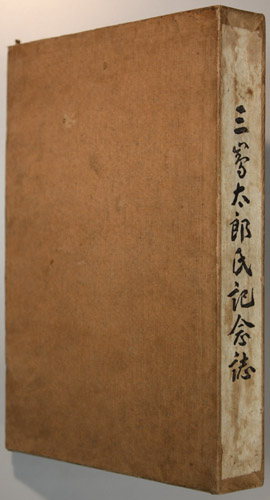 三嶌太郎氏記念誌